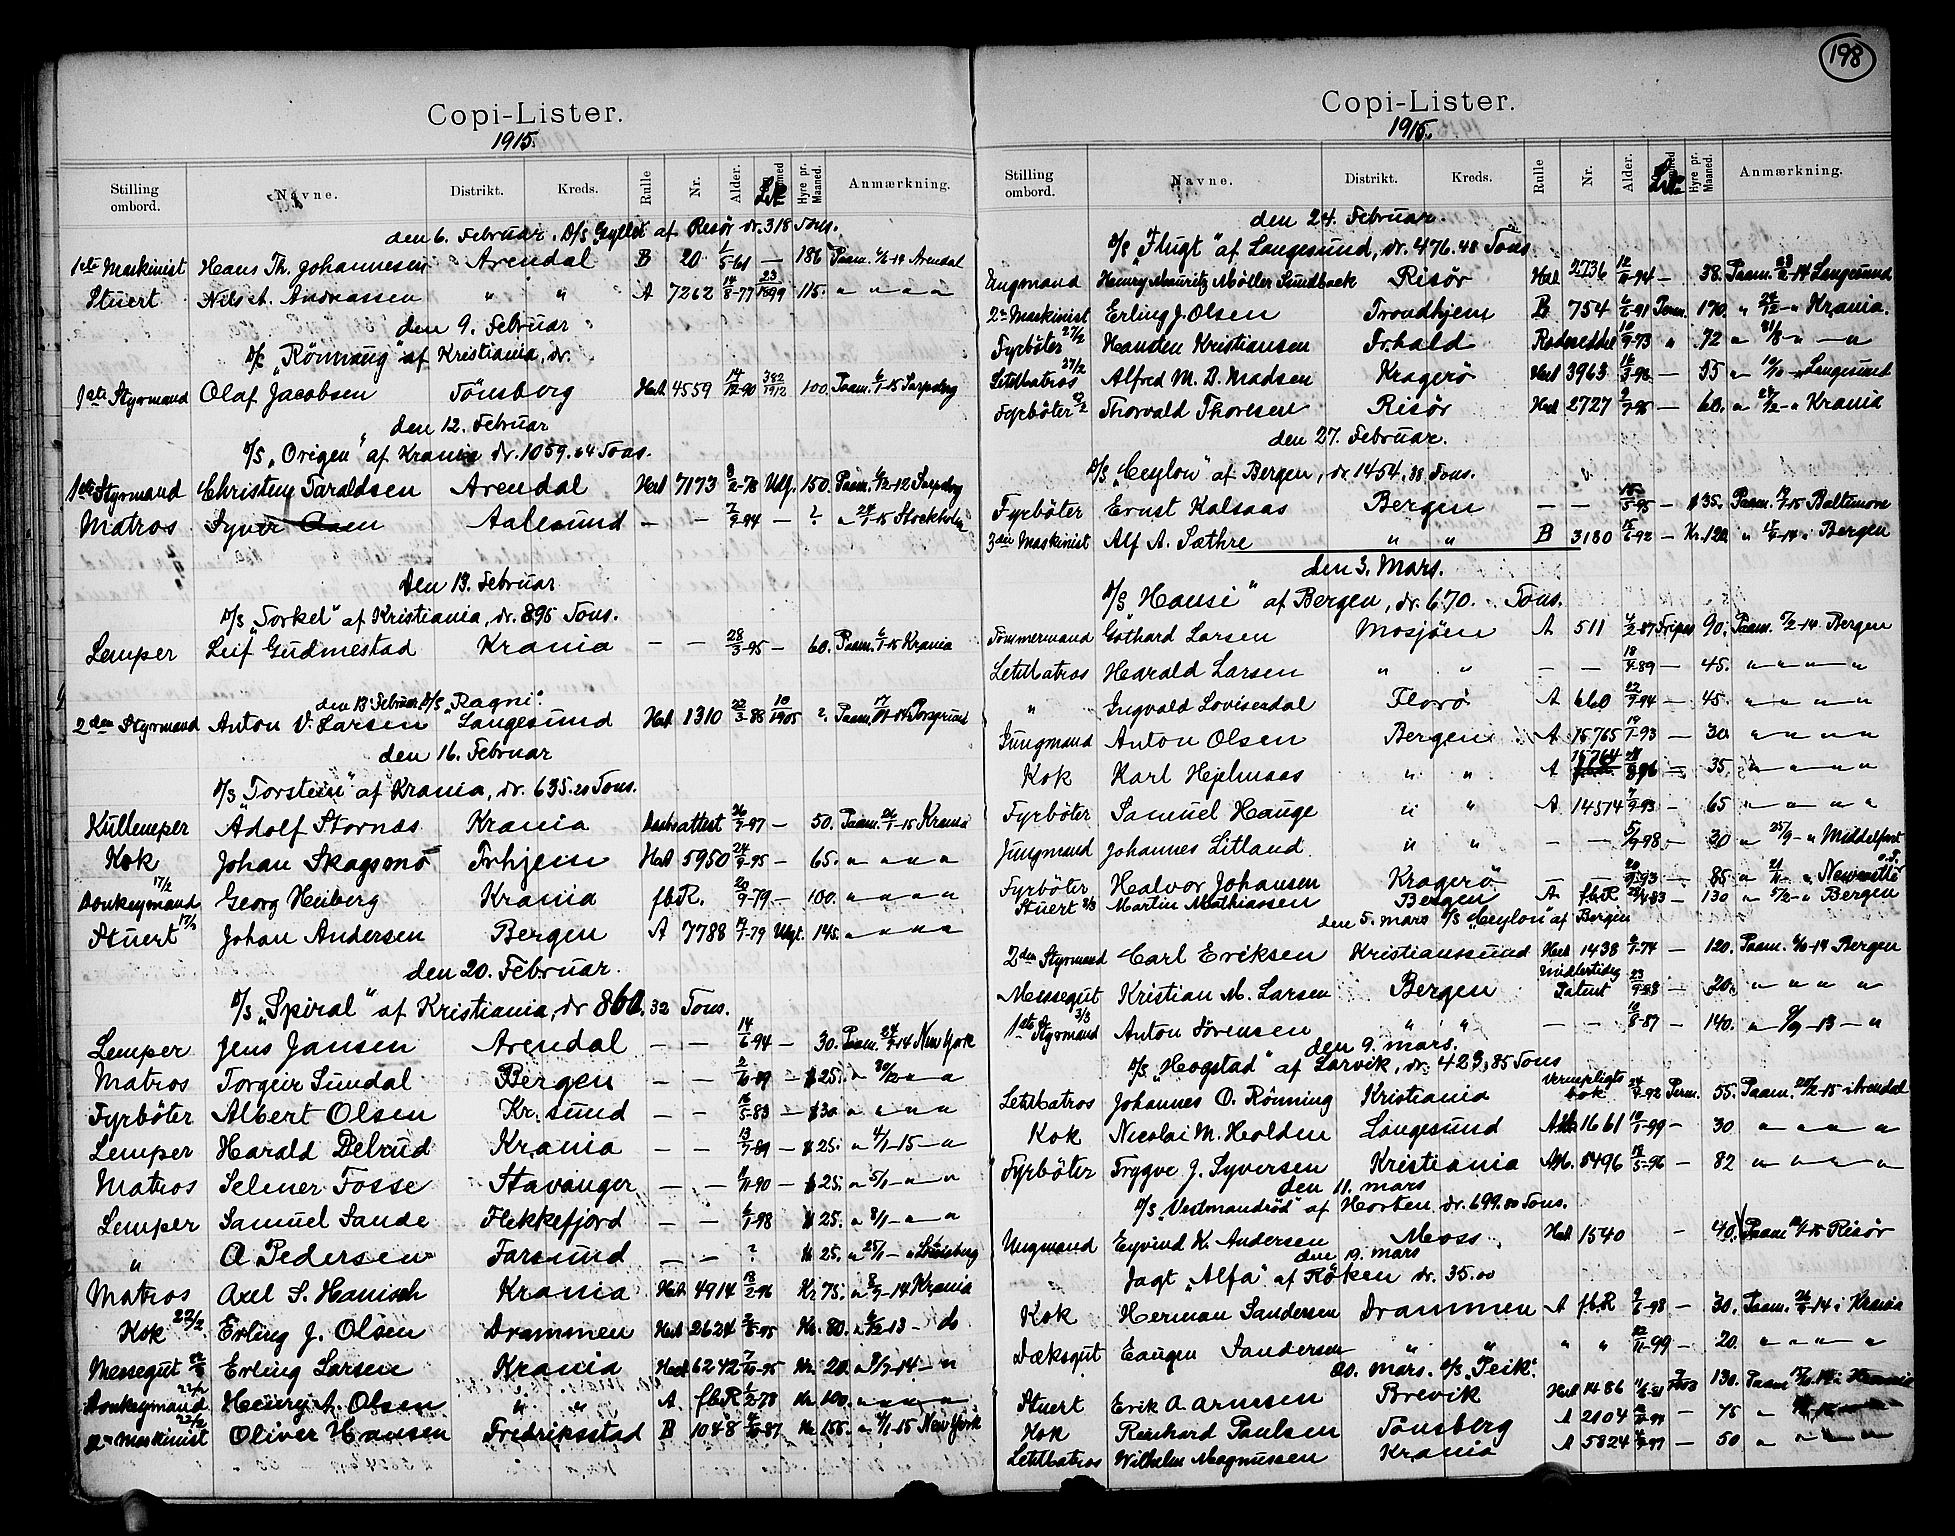 198
Copi-Lister.
1915.
Stilling ombord. Navne. Distrikt. Kreds. Rulle Nr. Alder. Hyre pr. Maaned. Anmærkning.
den 6. Februar. D/S Gyller af Risör dr. 318 Tons.
1ste Maskinist Hans Th. Johannesen Arendal B 20 1/5-61 — 186 Paam. Arendal
Stuert Nils A. Andreassen " " A 7262 14/8-77 115. " " " "
den 9. Februar
D/S „Rönnaug" af Kristiania, dr.
1ste Styrmand Olaf Jacobsen Tönsberg Hed 4559 14/12-90 382/1912 100. Paam. 6/1-15 Sarpsborg
den 12. Februar
D/S „Origen" af Krania dr. 1059.64 Tons.
1ste Styrmand Christen Taraldsen Arendal Hed 7173 8/2-78 Udf. 150. Paam. 6/12-12 Sarpsborg
Matros Syver Aalesund — — 2/9-94 — ? " 24/1-15 Stockholm
den 13. Februar
D/S „Torkel" af Kristiania, dr. 895 Tons.
Lemper Leif Gudmestad Krania — — 28/3-95 — 60. Paam. 6/1-15 Krania
den 13 Februar D/S „Ragni".
2den Styrmand Anton V. Larsen Langesund Hed 1310 22/3-88 10/1905 ? Paam. Porsgrund
den 16. Februar
D/S „Torstein" af Krania, dr. 635.20 Tons.
Kullemper Adolf Stornæs Krania Daabsattest 26/7-97 — 50. Paam. 26/1-15 Krania
Kok Johan Skagsmö Trhjem Hed 5950 24/9-95 — 65. " " " "
Donkeymand 17/2 Georg Heiberg Krania fbR. 20/9-79 — 100. " " " "
Stuert 17/2 Johan Andersen Bergen A 7788 19/7-79 Udgt. 145. " " " "
den 20. Februar.
D/S „Spiral" af Kristiania, dr 860,32 Tons.
Lemper Jens Jansen Arendal — — 14/6-94 — 30. Paam. New York
Matros Torgeir Sundal Bergen — — 2/10-89 — $25. " 30/12 " — "
Fyrböter Albert Olsen Kr.sund — — 16/5-83 — $30 " " — "
Lemper Harald Delrud Krania — — 13/7-89 — $25. " 4/1-15 — "
Matros Selmer Fosse Stavanger — — 9/11-90 — $25. " 5/1 — " — "
Lemper Samuel Sande Flekkefjord — — 6/1-98 $25. " 8/1 — " — "
" O Pedersen Farsund — — ? Kr 25. " 25/1 — "
Matros Axel S. Hanisch Krania Hed. 4914 18/2-96 Kr 75. " 8/9-14 Krania
Kok 22/2 Erling J. Olsen Drammen Hed 2624 Kr. 80. " 6/12-13 — do
Messegut 22/2 Erling Larsen Krania Hed 6242 7/10-95 Kr. 20. " 9/7-14 — "
Donkeymand 22/2 Henry A. Olsen " " A. fbR 6/2-78 Kr. 100. " " " "
2n Maskinist 22/2 Oliver Hansen Fredriksstad B 1048 Kr. 155. " 4/1-15 New York
Copi-Lister.
1915.
Stilling ombord. Navne. Distrikt. Kreds. Rulle Nr. Alder. Hyre pr. Maaned. Anmærkning.
den 24. Februar.
D/S „Flugt" af Langesund, dr. 476.48 Tons
Ungmand Henry Mauritz Möller Sundbaek Risör Hed 2736 — 38. Paam. 23/2-14 Langesund
2n Maskinist Erling J. Olsen Trondhjem B 754 Perm. 170. " 24/12 — " Krania.
Fyrböter 27/2 Hansten Kristiansen Frhald Rodeseddel 10/9-73 " 72 " 31/8 — " — "
LetMatros 27/2 Alfred M. D. Madsen Kragerö Hed 3963 16/3-98 — 55 " Langesund
Fyrböter 27/2 Thorvald Thoresen Risör Hed 2727 — 60. " Krania
den 27. Februar.
D/S „Ceylon" af Bergen, dr. 1454,38 Tons.
Fyrböter Ernst Kalsaas Bergen — — 15/5-95 — $35. Paam. Baltimore
3die Maskinist Alf A. Sæthre " " B 3180 15/6-92 — Kr. 120. " Bergen
den 3. Mars.
D/S „Hansi" af Bergen, dr. 670. Tons.
Tömmermand Gothard Larsen Mosjöen A 511 Fripas 90. Paam. Bergen
LetMatros Harald Larsen " " — — 18/4-89 — 45. " " " "
" Ingvald Lovisendal Florö A 660 22/9-94 — 45. " " " "
Jungmand Anton Olsen Bergen A 15765 19/7-93 — 30. " " " "
Kok Karl Hjelmaas " " A 15764 — 35. " " " "
Fyrböter Samuel Hauge " " A 14574 9/9-93 — 65 " " " "
Jungmand Johannes Litland " " — — — 30 " 25/9 — " Middelfart
Fyrböter Halvor Johansen Kragerö — — 85 " " Newcastle
Stuert 3/3 Martin Mathiassen Bergen A fbR — 130 " 5/12 — " Bergen
den 5. mars D/S „Ceylon" af Bergen
2den Styrmand Carl Eriksen Kristianssund Hed 1438 — 120. Paam. Bergen
Messegut Kristian M. Larsen Bergen Midlertidig Patent — 20. " " " "
1ste Styrmand 3/3 Anton Sörensen " " — — 10/8-87 — 140. " 9/9-13 — "
den 9. mars.
D/S „Hogstad" af Larvik, dr. 423,85 Tons
LetMatros Johannes O. Rönning Kristiania Vernepligts bok Perm. 55. Paam. Arendal
Kok Nicolai M. Holden Langesund 1661 10/1-99 — 30 " " " "
Fyrböter Trygve J. Syversen Kristiania 5496 12/5-96 — 82 " " " "
den 11. mars
D/S „Vestmandröd" af Horten dr. 699.00 Tons.
Ungmand Eyvind K. Andersen Moss. Hed 1540 — 40. Paam Risör
den 19. mars
Jagt „Alfa" af Röken dr. 35.00
Kok Herman Sandersen Drammen A fbR 2/6-98 — 30. Paam. Krania
Dæksgut Eaugen Sandersen " " " " 12/11-99 — 20. " " " "
20. mars. D/S „Peik".
Stuert Erik A. Arnesen Brevik Hed 1486 130. Paam
Kok Reinhard Paulsen Tönsberg A 2104 — 75 "
LetMatros Wilhelm Magnussen Krania A 5824 — 50 " "